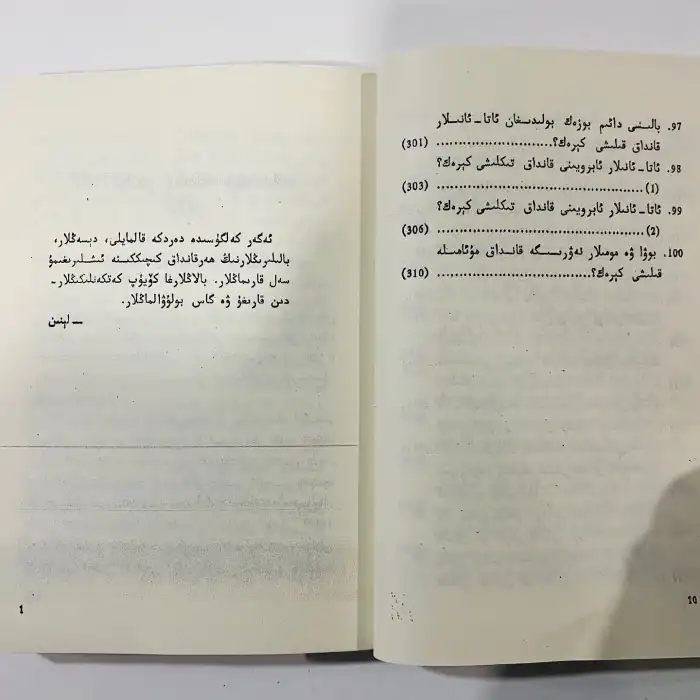 97. بالىنى دائىم بوزەك بولىدىغان ئاتا-ئانىلار
قانداق قىلىشى كېرەك؟..........................(301)
98. ئاتا-ئانىلار ئابرويىنى قانداق تىكلىشى كېرەك؟
(1)..............................................(303)
99. ئاتا-ئانىلار ئابرويىنى قانداق تىكلىشى كېرەك؟
(2)..............................................(306)
100. بوۋا ۋە مومىلار نەۋرىسىگە قانداق مۇئامىلە
قىلىشى كېرەك؟..................................(310)
10
ئەگەر كەلگۈسىدە دەردكە قالمايلى، دېسەڭلار،
بالىلىرىڭلارنىڭ ھەرقانداق كىچىككىنە ئىشلىرىغىمۇ
سەل قارىماڭلار. بالاڭلارغا كۆيۈپ كەتكەنلىكىڭلار-
دىن قارىغۇ ۋە گاس بولۇۋالماڭلار.
— لېنىن
1